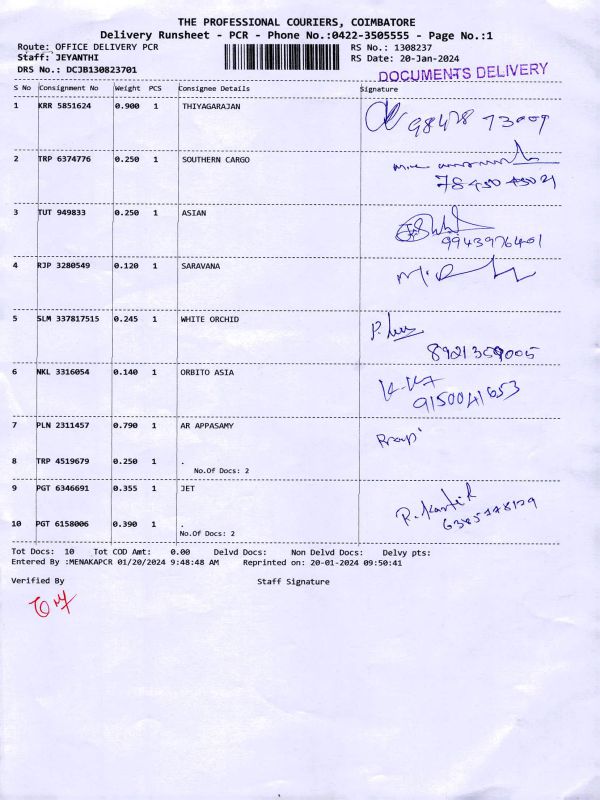 THE PROFESSIONAL COURIERS, COIMBATORE
Delivery Runsheet - PCR - Phone No.:0422-3505555 - Page No.:1
Route: OFFICE DELIVERY PCR RS No.: 1308237
Staff: JEYANTHI RS Date: 20-Jan-2024
DRS No.: DCJB130823701 DOCUMENTS DELIVERY
S No Consignment No Weight PCS Consignee Details Signature
1 KRR 5851624 0.900 1 THIYAGARAJAN
2 TRP 6374776 0.250 1 SOUTHERN CARGO
3 TUT 949833 0.250 1 ASIAN
9943976401
4 RJP 3280549 0.120 1 SARAVANA
5 SLM 337817515 0.245 1 WHITE ORCHID
8921359005
6 NKL 3316054 0.140 1 ORBITO ASIA
9150041653
7 PLN 2311457 0.790 1 AR APPASAMY
8 TRP 4519679 0.250 1 .
No.Of Docs: 2
9 PGT 6346691 0.355 1 JET
R. Kartik
10 PGT 6158006 0.390 1 .
No.Of Docs: 2
Tot Docs: 10 Tot COD Amt: 0.00 Delvd Docs: Non Delvd Docs: Delvy pts:
Entered By :MENAKAPCR 01/20/2024 9:48:48 AM Reprinted on: 20-01-2024 09:50:41
Verified By Staff Signature